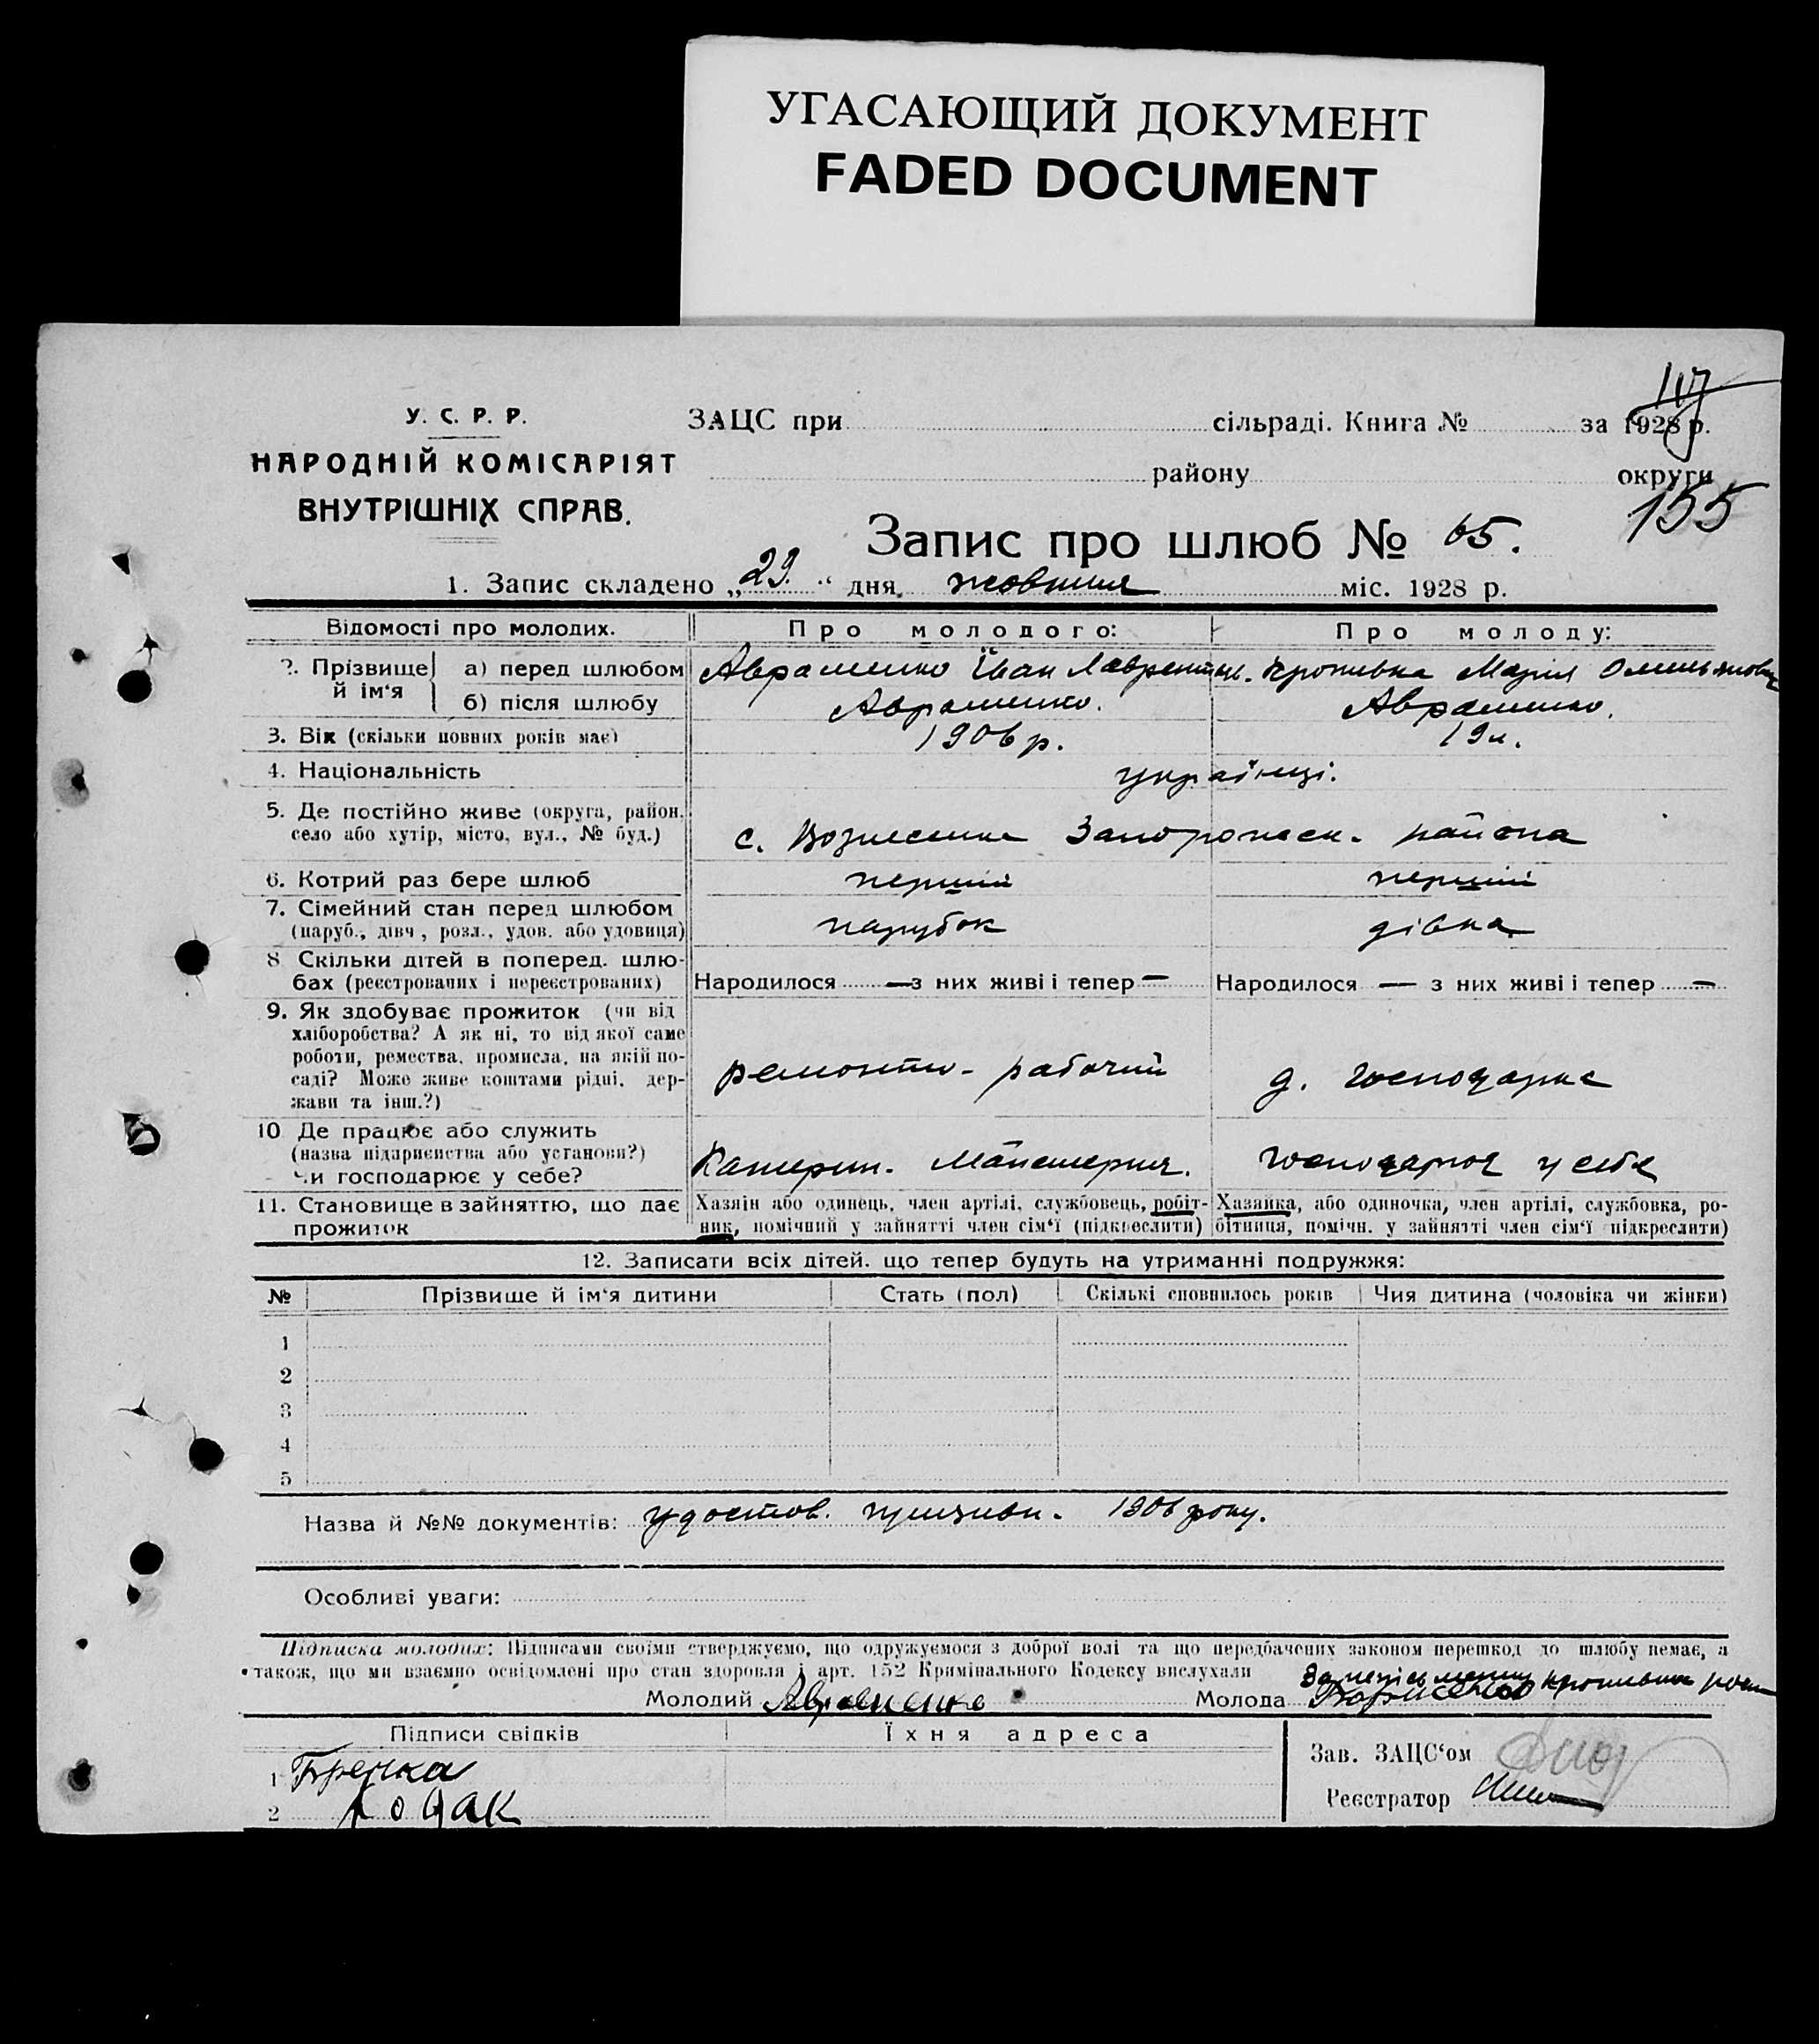 УГАСАЮЩИЙ ДОКУМЕНТ
FADED DOCUMENT
У. С. Р. Р.
НАРОДНІЙ КОМІСАРІЯТ
ВНУТРІШНІХ СПРАВ.
ЗАЦС при сільраді. Книга № за 1928 р.
району округи
155
Запис про шлюб № 65.
1. Запис складено „29.“ дня жовтня міс. 1928 р.
Відомості про молодих. Про молодого: Про молоду:
2. Прізвище й ім‘я а) перед шлюбом Авраменко Іван Лаврентьев. Кропивка Марія Омельянов
б) після шлюбу Авраменко. Авраменко.
3. Вік (скільки повних років має) 1906 р. 19 л.
4. Національність українці.
5. Де постійно живе (округа, район,
село або хутір, місто, вул., № буд.) с. Вознесенка Запорожск. района
6. Котрий раз бере шлюб перший перший
7. Сімейний стан перед шлюбом
(паруб., дівч., розл., удов. або удовиця) парубок дівка
8 Скільки дітей в поперед. шлю-
бах (реєстрованих і нереєстрованих) Народилося — з них живі і тепер — Народилося — з них живі і тепер —
9. Як здобуває прожиток (чи від
хліборобства? А як ні, то від якої саме
роботи, ремества, промисла, на якій по-
саді? Може живе коштами рідні, дер-
жави та інш.?) ремонтн- рабочий д. господарка
10 Де працює або служить
(назва підприємства або установи?)
Чи господарює у себе? Катерин. Майстерня. господарює у себе
11. Становище в зайняттю, що дає
прожиток
Хазяїн або одинець, член артілі, службовець, робіт-
ник, помічний у зайнятті член сім‘ї (підкреслити)
Хазяйка, або одиночка, член артілі, службовка, ро-
бітниця, помічн. у зайнятті член сім‘ї підкреслити)
12. Записати всіх дітей, що тепер будуть на утриманні подружжя:
№ Прізвище й ім‘я дитини Стать (пол) Скількі сповнилось років Чия дитина (чоловіка чи жінки)
1
2
3
4
5
Назва й №№ документів: удостов. призивн. 1906 року.
Особливі уваги:
Підписка молодих: Підписами своїми стверджуємо, що одружуємося з доброї волі та що передбачених законом перешкод до шлюбу немає, а
також, що ми взаємно освідомлені про стан здоровля і арт. 152 Кримінального Кодексу вислухали
Молодий Авраменко Молода За неписьменну Кропивка
Підписи свідків Їхня адреса
1
2 Кодак
Зав. ЗАЦС‘ом
Реєстратор